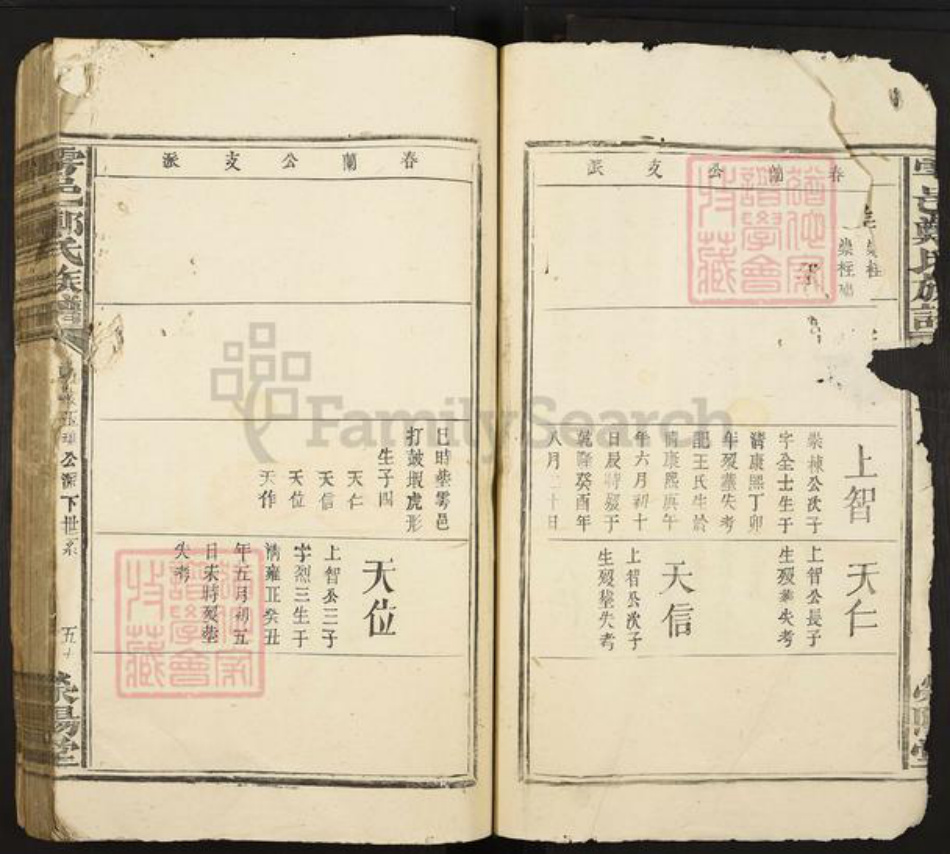 春蘭公支派
上智
崇棟公次子
字全士生于
清康熙丁卯
年歿塟失考
配王氏生於
清康熙庚午
年六月初十
日辰時歿于
乾隆癸酉年
八月二十日
天仁
上智公長子
生歿塟失考
天信
上智公次子
生歿塟失考
春蘭公支派
巳時塟雩邑
打鼓瑕虎形
生子四
天仁
天信
天位
天作
天位
上智公三子
字烈三生于
清雍正癸丑
年五月初五
日未時歿塟
失考
雩邑鄭氏族譜
公派下世系
五十
滎陽堂
FamilySearch